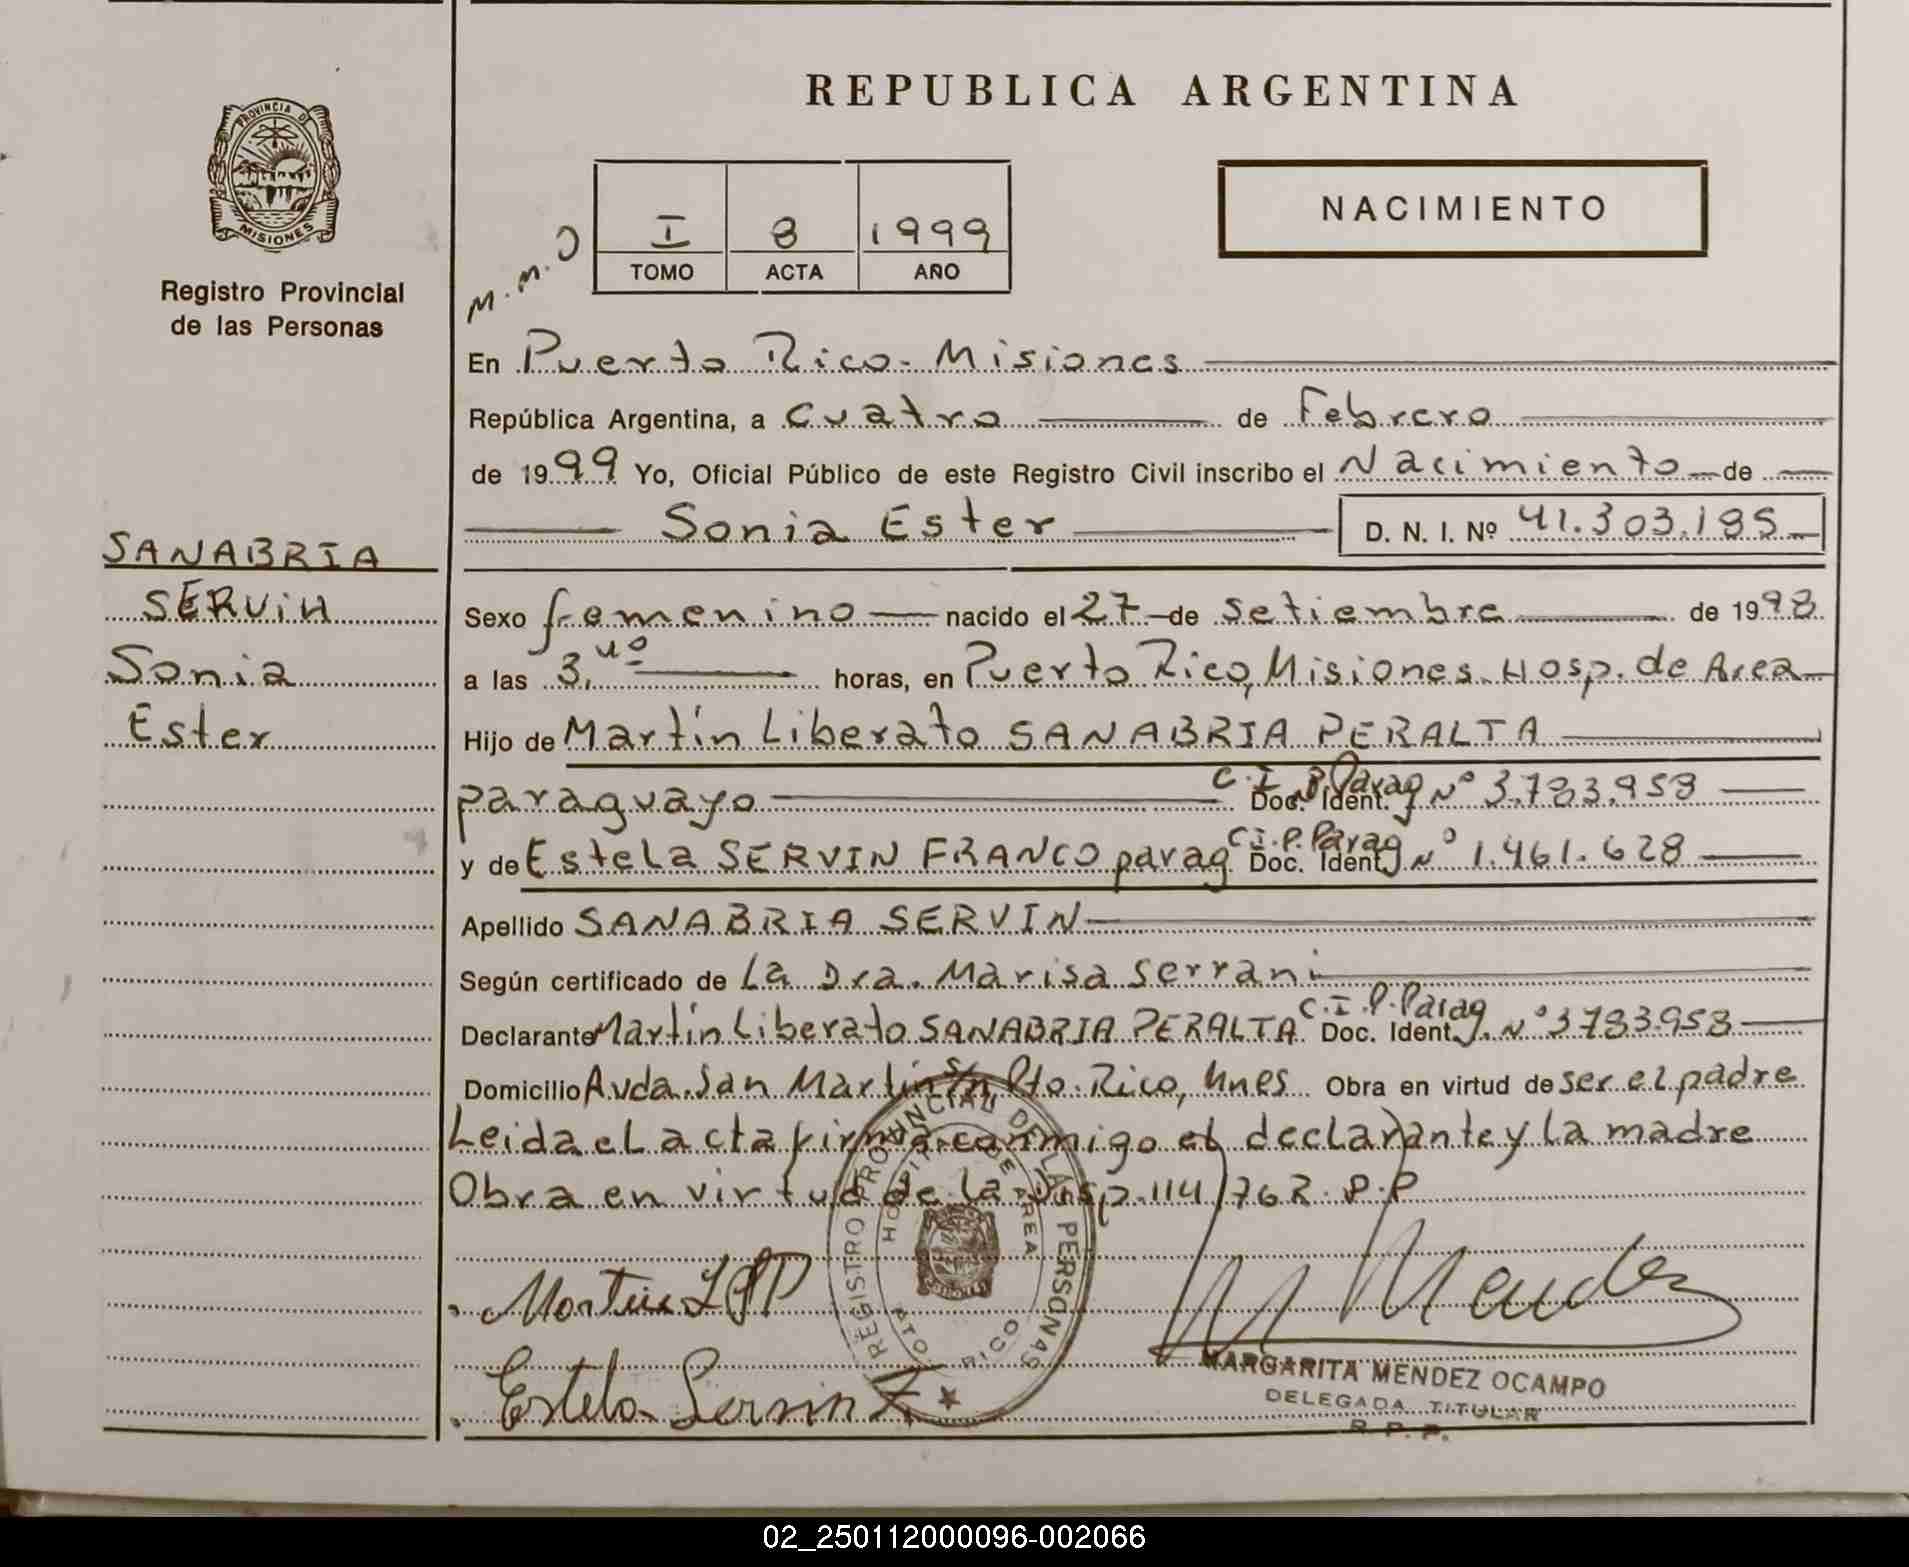 REPUBLICA ARGENTINA
PROVINCIA DE
MISIONES
Registro Provincial
de las Personas
NACIMIENTO
M.M.O
I 8 1999
TOMO ACTA AÑO
En Puerto Rico - Misiones
República Argentina, a cuatro de Febrero
de 1999 Yo, Oficial Público de este Registro Civil inscribo el Nacimiento de
Sonia Ester D. N. I. Nº 41.303.185
SANABRIA
SERVIN
Sonia
Ester
Sexo femenino nacido el 27 de setiembre de 1998
a las 3,40 horas, en Puerto Rico, Misiones. Hosp. de Area
Hijo de Martín Liberato SANABRIA PERALTA
paraguayo C.I.P. Parag Doc. Ident. Nº 3.783.958
y de Estela SERVIN FRANCO parag C.I.P. Parag Doc. Ident. Nº 1.461.628
Apellido SANABRIA SERVIN
Según certificado de La Dra. Marisa Serrani
Declarante Martín Liberato SANABRIA PERALTA C.I.P. Parag Doc. Ident. Nº 3783.958
Domicilio Avda. San Martín s/n Pto. Rico, Mnes Obra en virtud de ser el padre
Leida el acta firma conmigo el declarante y la madre
Obra en virtud de la Disp. 114/762 P.P
REGISTRO PROVINCIAL DE LAS PERSONAS
HOSPITAL DE AREA
PTO. RICO
Martin LSP
M Mendez
Estela Servin F
MARGARITA MENDEZ OCAMPO
DELEGADA TITULAR
R. P. P.
02_250112000096-002066